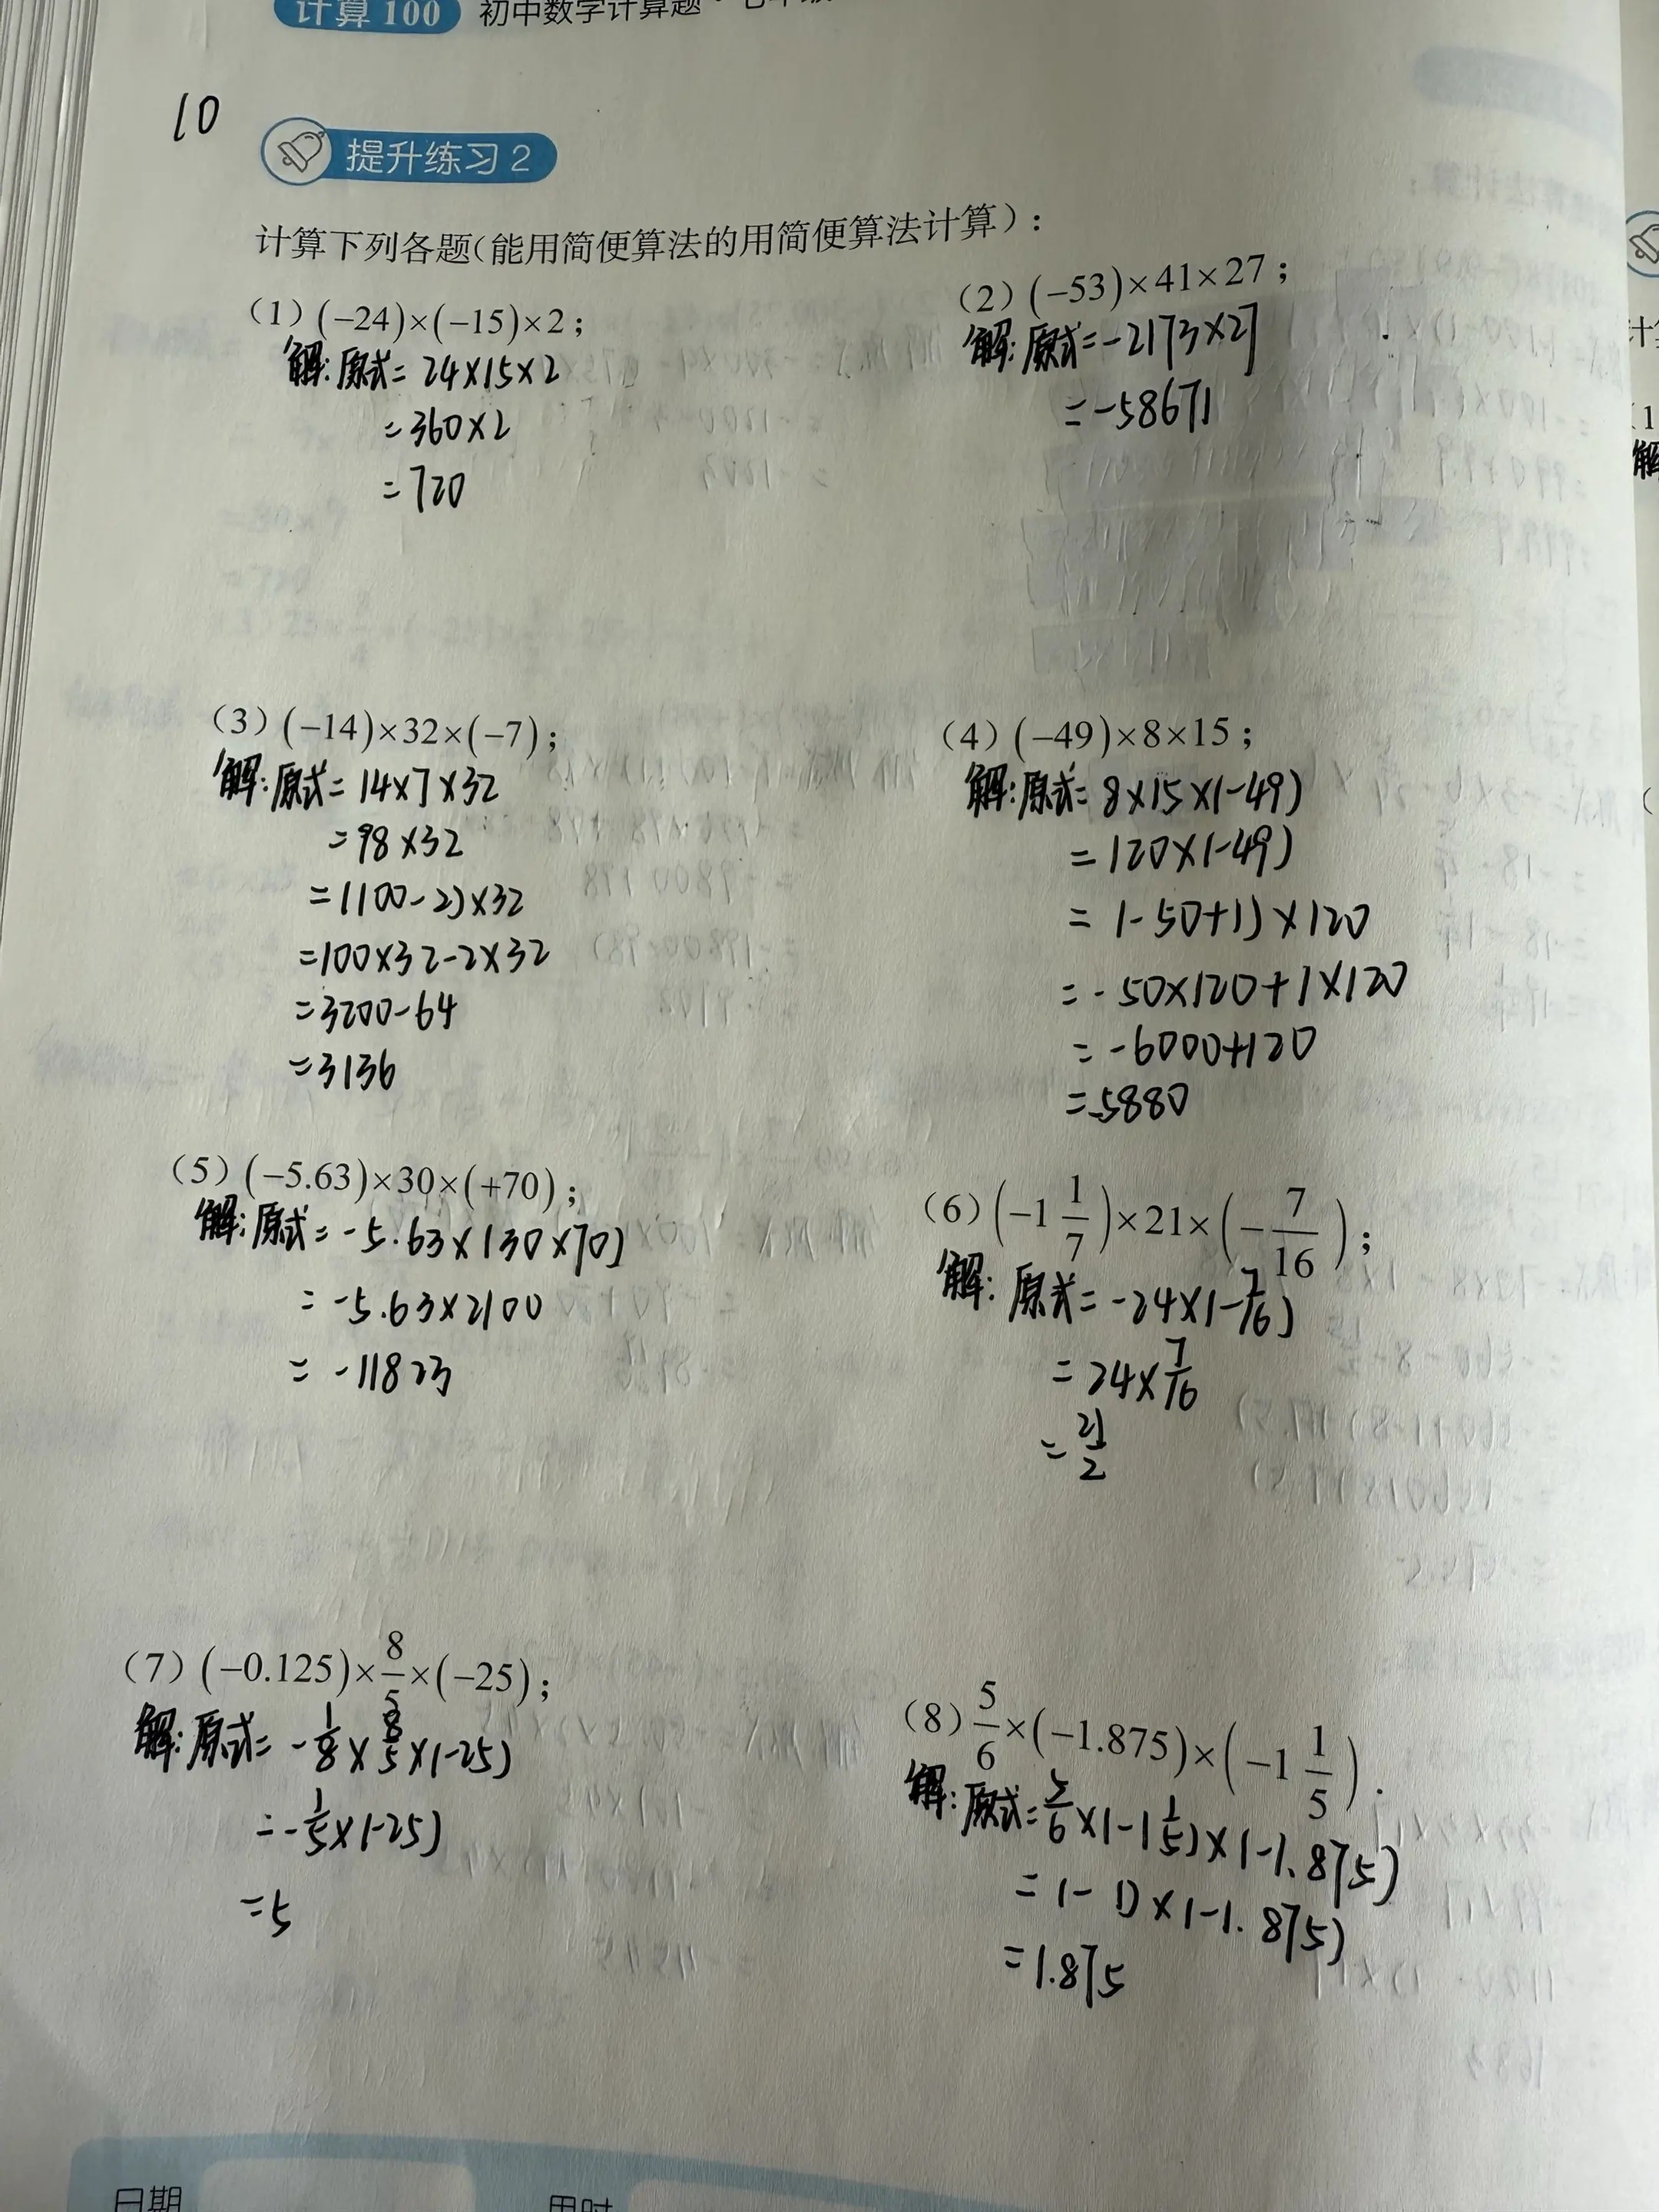 计算 100 初中数学计算题·七年级
10
提升练习 2
计算下列各题(能用简便算法的用简便算法计算):
(1) (−24)×(−15)×2;
解:原式= 24×15×2
=360×2
=720
(2) (−53)×41×27;
解:原式=-2173×27
=-58671
(3) (−14)×32×(−7);
解:原式= 14×7×32
=98×32
=(100-2)×32
=100×32-2×32
=3200-64
=3136
(4) (−49)×8×15;
解:原式= 8×15×(-49)
=120×(-49)
=(-50+1)×120
=-50×120+1×120
=-6000+120
=-5880
(5) (−5.63)×30×(+70);
解:原式= -5.63×(30×70)
= -5.63×2100
= -11823
(6) (−1 1/7)×21×(−7/16);
解: 原式= -24×(-7/16)
= 24×7/16
= 21/2
(7) (−0.125)×8/5×(−25);
解:原式= -1/8×8/5×(-25)
=-1/5×(-25)
=5
(8) 5/6×(−1.875)×(−1 1/5).
解:原式=5/6×(-1 1/5)×(-1.875)
=(-1)×(-1.875)
=1.875
日期
用时